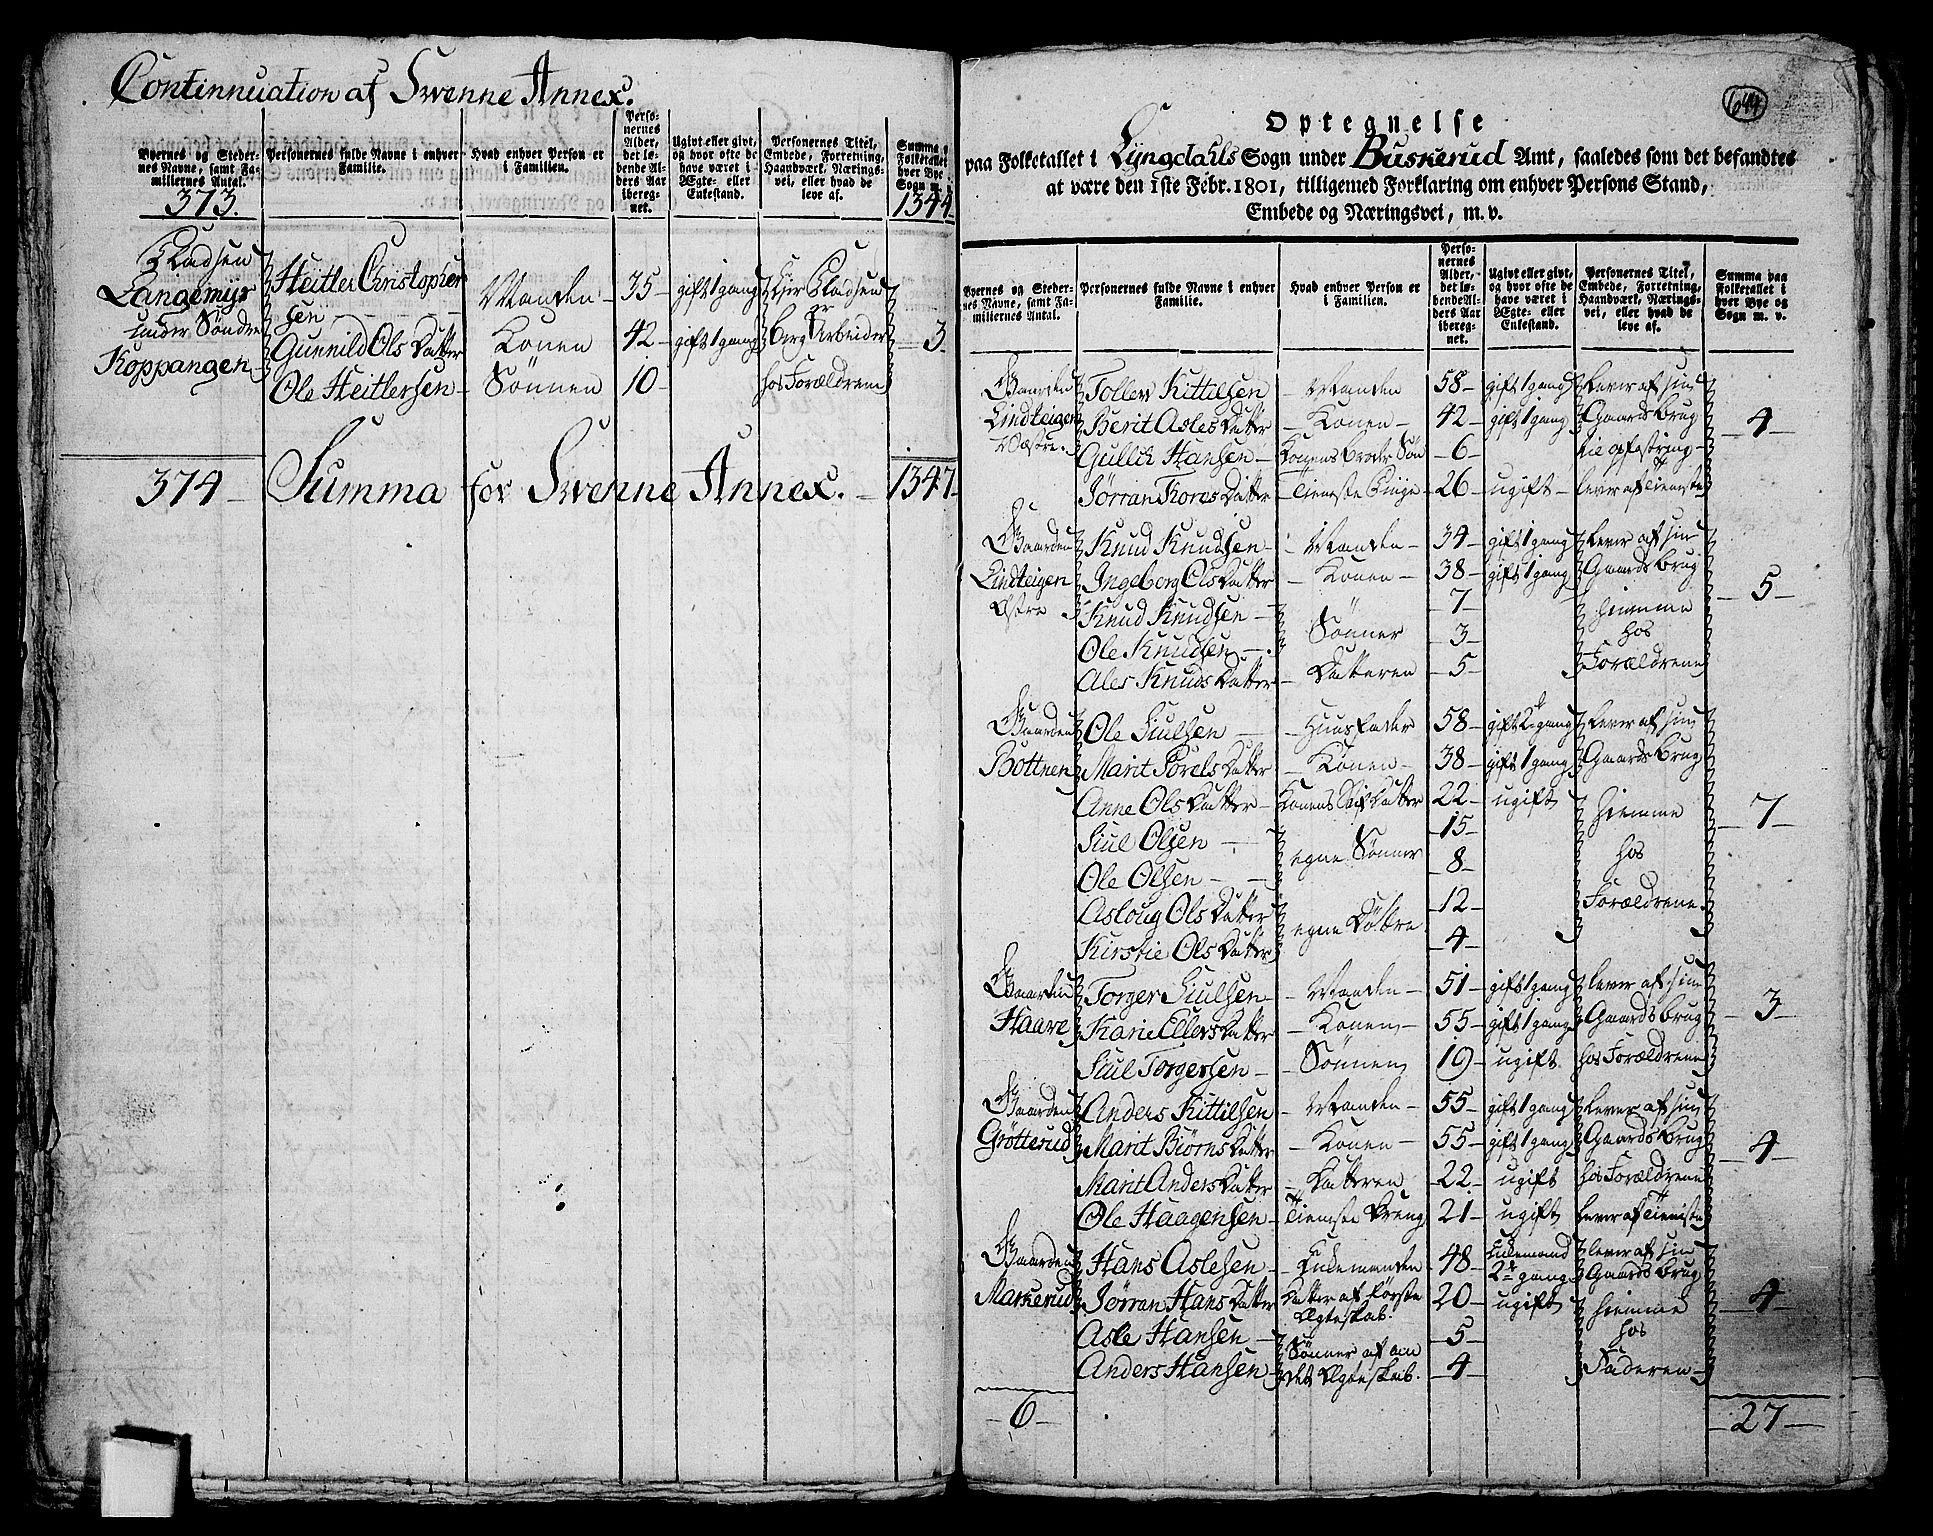 Continnuation af Svenne Annex.
Byernes og Stedernes Navne, samt Familiernes Antal. | Personernes fulde Navne i enhver Familie. | Hvad enhver Person er i Familien. | Personernes Alder, det løbende Alders Aar iberegnet. | Ugivt eller givt, og hvor ofte de have været i Ægte- eller Enkestand. | Personernes Titel, Embede, Forretning, Haandværk, Næringsvei, eller hvad de leve af. | Summa paa Folketallet i hver Bye og Sogn m. v.
373. | 1344
Pladsen | Heitler Christopher
Langemyr | sen | Manden | 35 | gift 1 gang | Eier Pladsen
under Søndre | Gunnild Ols Datter | Konen | 42 | gift 1 gang | er Berg Arbeider | 3
Koppangen | Ole Heitlersen | Sønnen | 10 | hos Forældrene
374 | Summa for Svenne Annex. | 1347
649
Optegnelse
paa Folketallet i Lyngdahls Sogn under Buskerud Amt, saaledes som det befandtes
at være den 1ste Febr. 1801, tilligemed Forklaring om enhver Persons Stand,
Embede og Næringsvei, m. v.
Byernes og Stedernes Navne, samt Familiernes Antal. | Personernes fulde Navne i enhver Familie. | Hvad enhver Person er i Familien. | Personernes Alder, det løbende Alders Aar iberegnet. | Ugivt eller givt, og hvor ofte de have været i Ægte- eller Enkestand. | Personernes Titel, Embede, Forretning, Haandværk, Næringsvei, eller hvad de leve af. | Summa paa Folketallet i hver Bye og Sogn m. v.
Gaarden | Tollev Kittilsen | Manden | 58 | gift 1 gang | Lever af sin
Lindteigen | Berit Asles Datter | Konen | 42 | gift 1 gang | Gaards Brug | 4
Vestre. | Gullik Hansen | Konens Broder Søn | 6 | til opfostring
Jørran Kores Datter | Tieneste Piige | 26 | ugift | lever af Tieneste
Gaarden | Knud Knudsen | Manden | 34 | gift 1 gang | Lever af sin
Lindteigen | Ingeborg Ols Datter | Konen | 38 | gift 1 gang | Gaards Brug | 5
Østre | Knud Knudsen | 7 | hiemme
Ole Knudsen | Sønner | 3 | hos
Ales Knuds Datter | Datteren | 5 | Forældrene
Gaarden | Ole Siulsen | Huusfader | 58 | gift 2 gang | Lever af sin
Bottnen | Marit Porels Datter | Konen | 38 | gift 1 gang | Gaards Brug
Anne Ols Datter | Konens Stifdatter | 22 | ugift | hiemme | 7
Siul Olsen | egne Sønner | 15 | hos
Ole Olsen | 8
Asloug Ols Datter | egne Døttre | 12 | Forældrene
Kirstie Ols Datter | 4
Gaarden | Torger Siulsen | Manden | 51 | gift 1 gang | lever af sin
Haave | Karie Ellevs Datter | Konen | 55 | gift 1 gang | Gaards brug | 3
Siul Torgersen | Sønnen | 19 | ugift | hos Forældrene
Gaarden | Anders Kittilsen | Manden | 55 | gift 1 gang | Lever af sin
Grötterud | Marit Biørns Datter | Konen | 55 | gift 1 gang | Gaards Brug | 4
Marit Anders Datter | Datteren | 22 | ugift | hos Forældrene
Ole Haagensen | Tieneste Dreng | 21 | ugift | Lever af Tieniste
Gaarden | Hans Aslesen | Enkemanden | 48 | Enkemand 2de gang | lever af sin Gaards Brug
Markerud | Jørran Hans Datter | Datter af første Ægteskab. | 20 | ugift | hiemme | 4
Asle Hansen | Sønner af an | 5 | hos
Anders Hansen | det Ægteskab. | 4 | Faderen
6 | 27